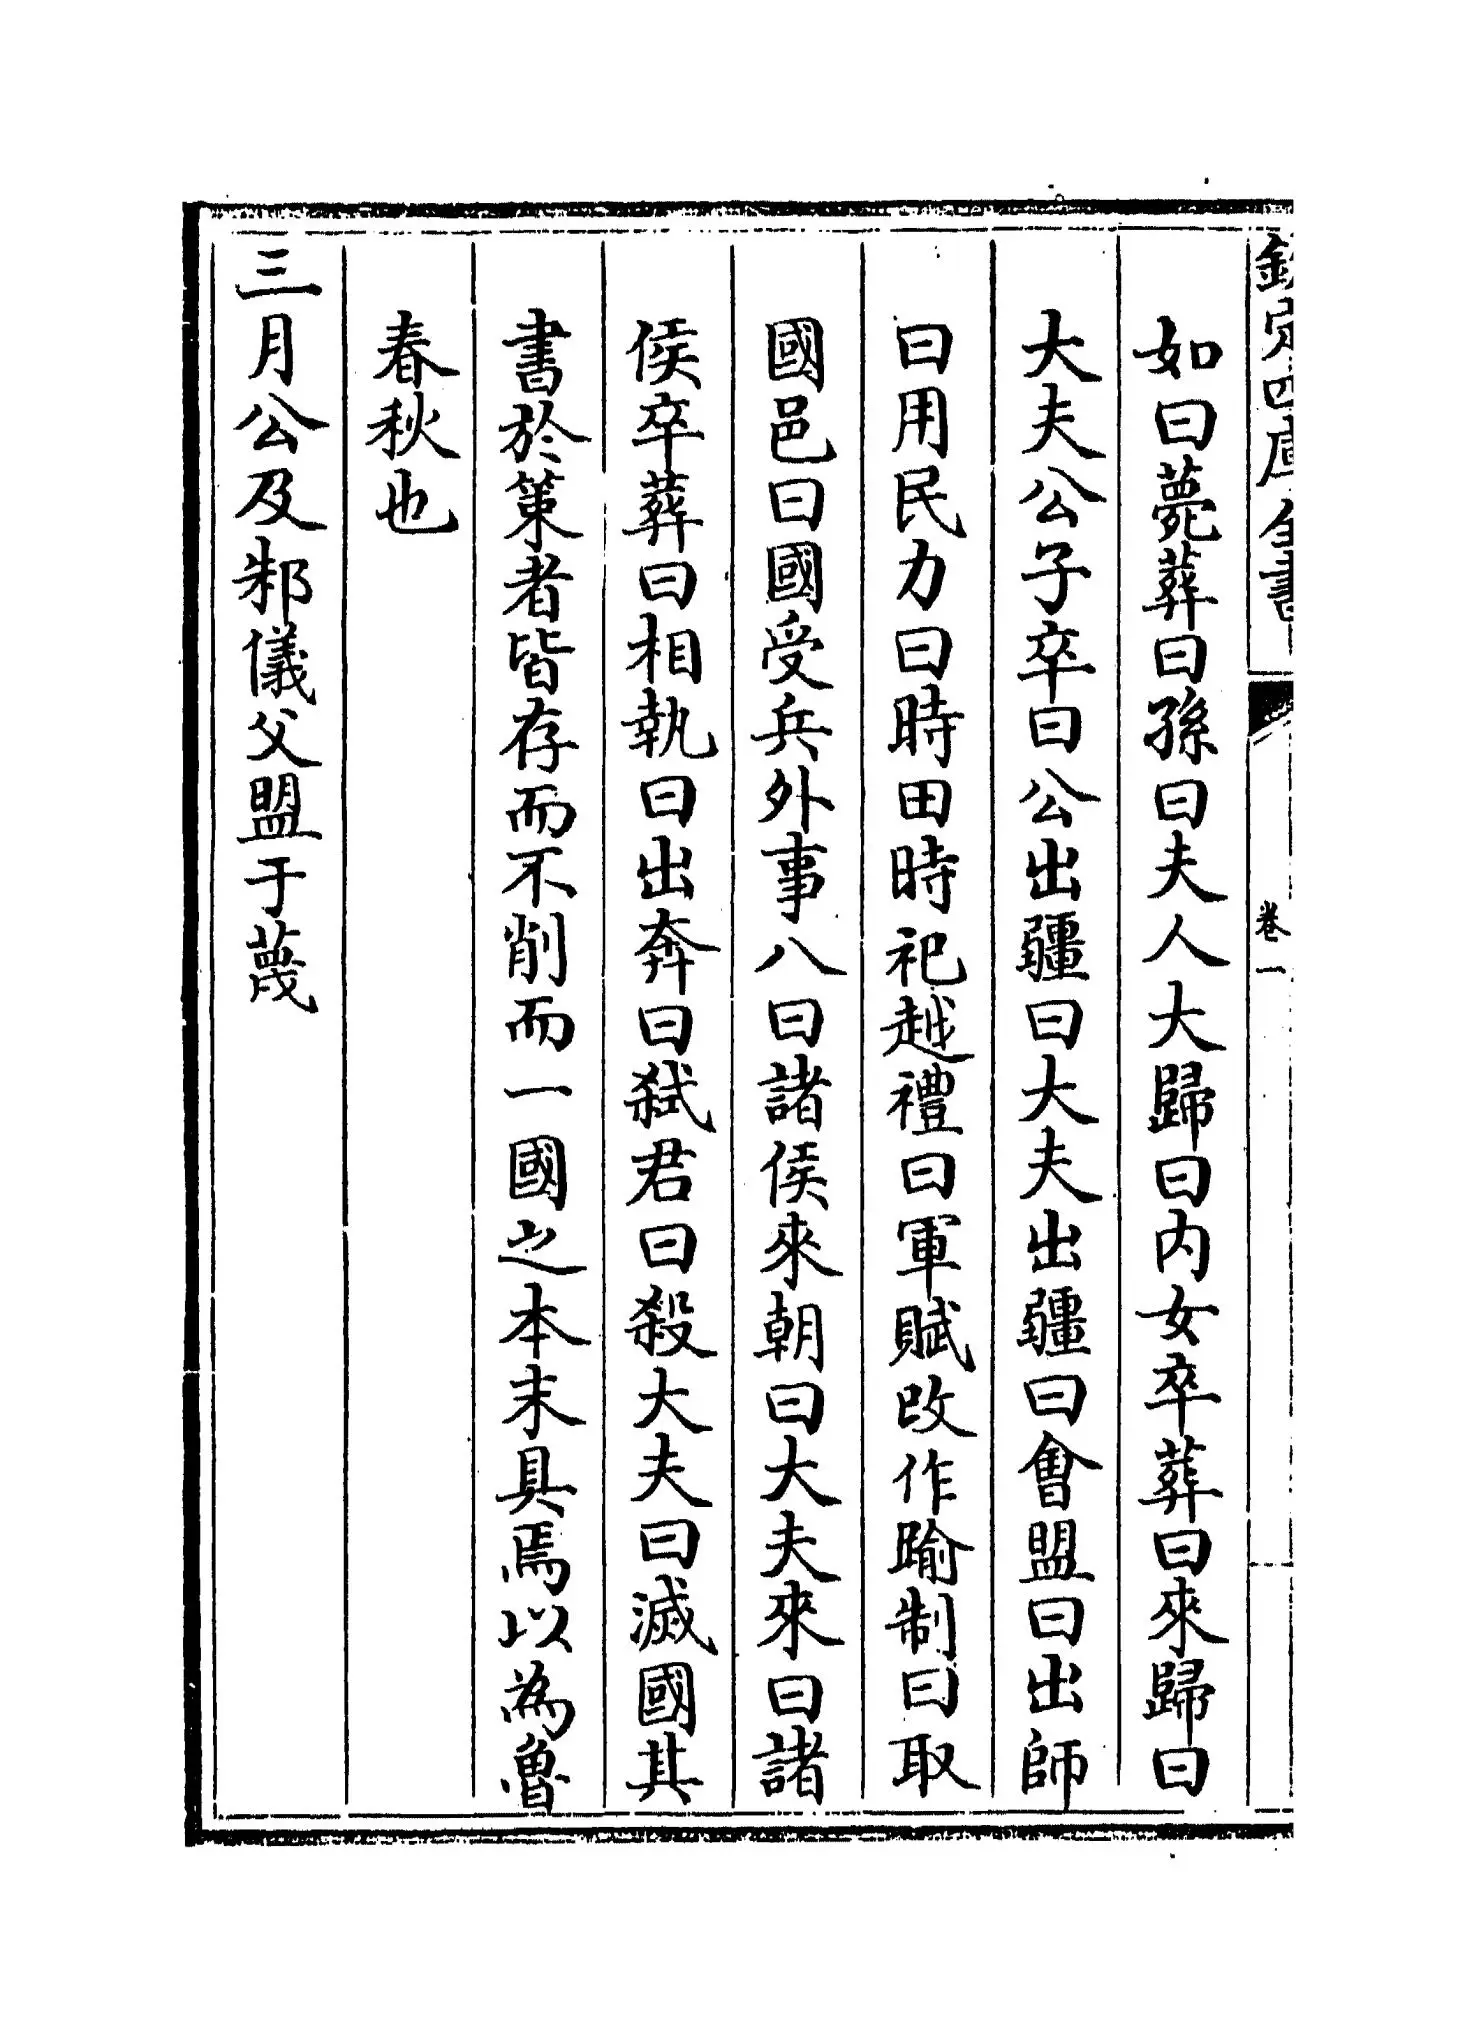 欽定四庫全書
卷一
如曰薨葬曰孫曰夫人大歸曰内女卒葬曰來歸曰
大夫公子卒曰公出疆曰大夫出疆曰會盟曰出師
曰用民力曰時田時祀越禮曰軍賦改作踰制曰取
國邑曰國受兵外事八曰諸侯來朝曰大夫來曰諸
侯卒葬曰相執曰出奔曰弑君曰殺大夫曰滅國其
書於策者皆存而不削而一國之本末具焉以為魯
春秋也
三月公及邾儀父盟于蔑